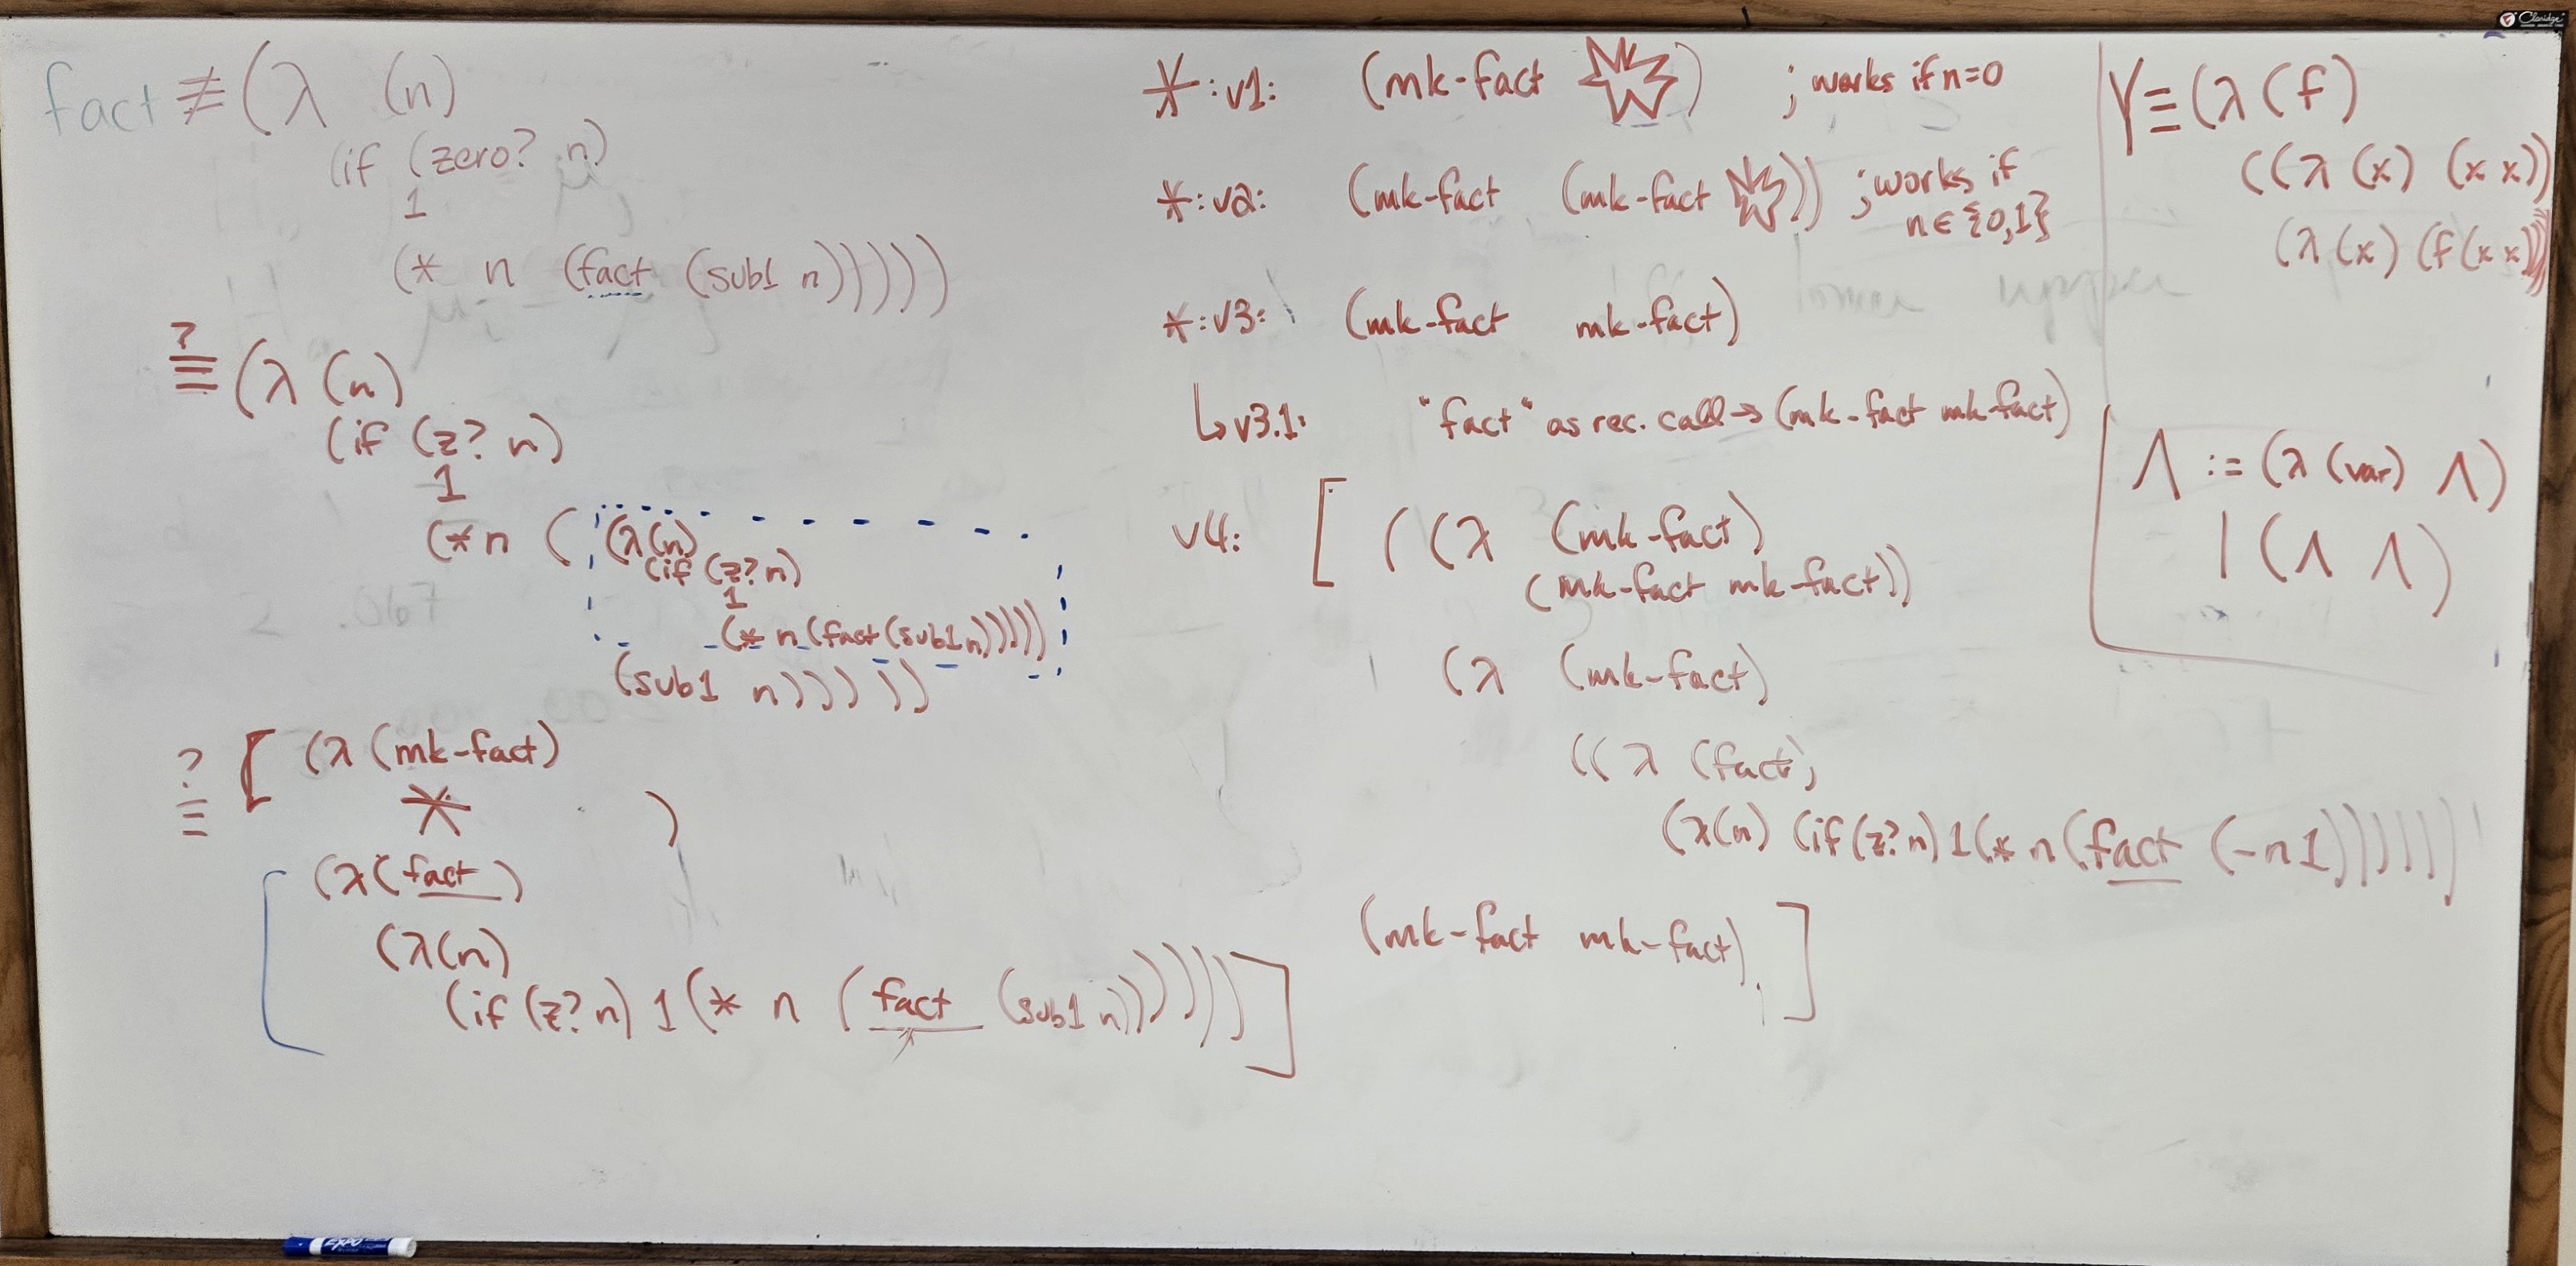 fact ≢ (λ (n)
(if (zero? n)
1
(* n (fact (sub1 n)))))
? ≡ (λ (n)
(if (z? n)
1
(*n ( (λ(n)
(if (z? n)
1
(* n (fact (sub1 n)))))
(sub1 n)))))
? ≡ [ (λ (mk-fact)
* )
(λ(fact)
(λ(n)
(if (z? n) 1 (* n (fact (sub1 n)))))) ]
*:v1: (mk-fact ) ; works if n=0
*:v2: (mk-fact (mk-fact )) ; works if
n∈{0,1}
*:v3: (mk-fact mk-fact)
↳v3.1: "fact" as rec. call → (mk-fact mk-fact)
v4: [ ((λ (mk-fact)
(mk-fact mk-fact))
(λ (mk-fact)
((λ (fact)
(λ(n) (if (z? n) 1 (* n (fact (-n 1))))))
(mk-fact mk-fact) ]
Y ≡ (λ (f)
((λ (x) (x x))
(λ (x) (f (x x)))))
Λ := (λ (var) Λ)
| (Λ Λ)
Claridge
EXPO